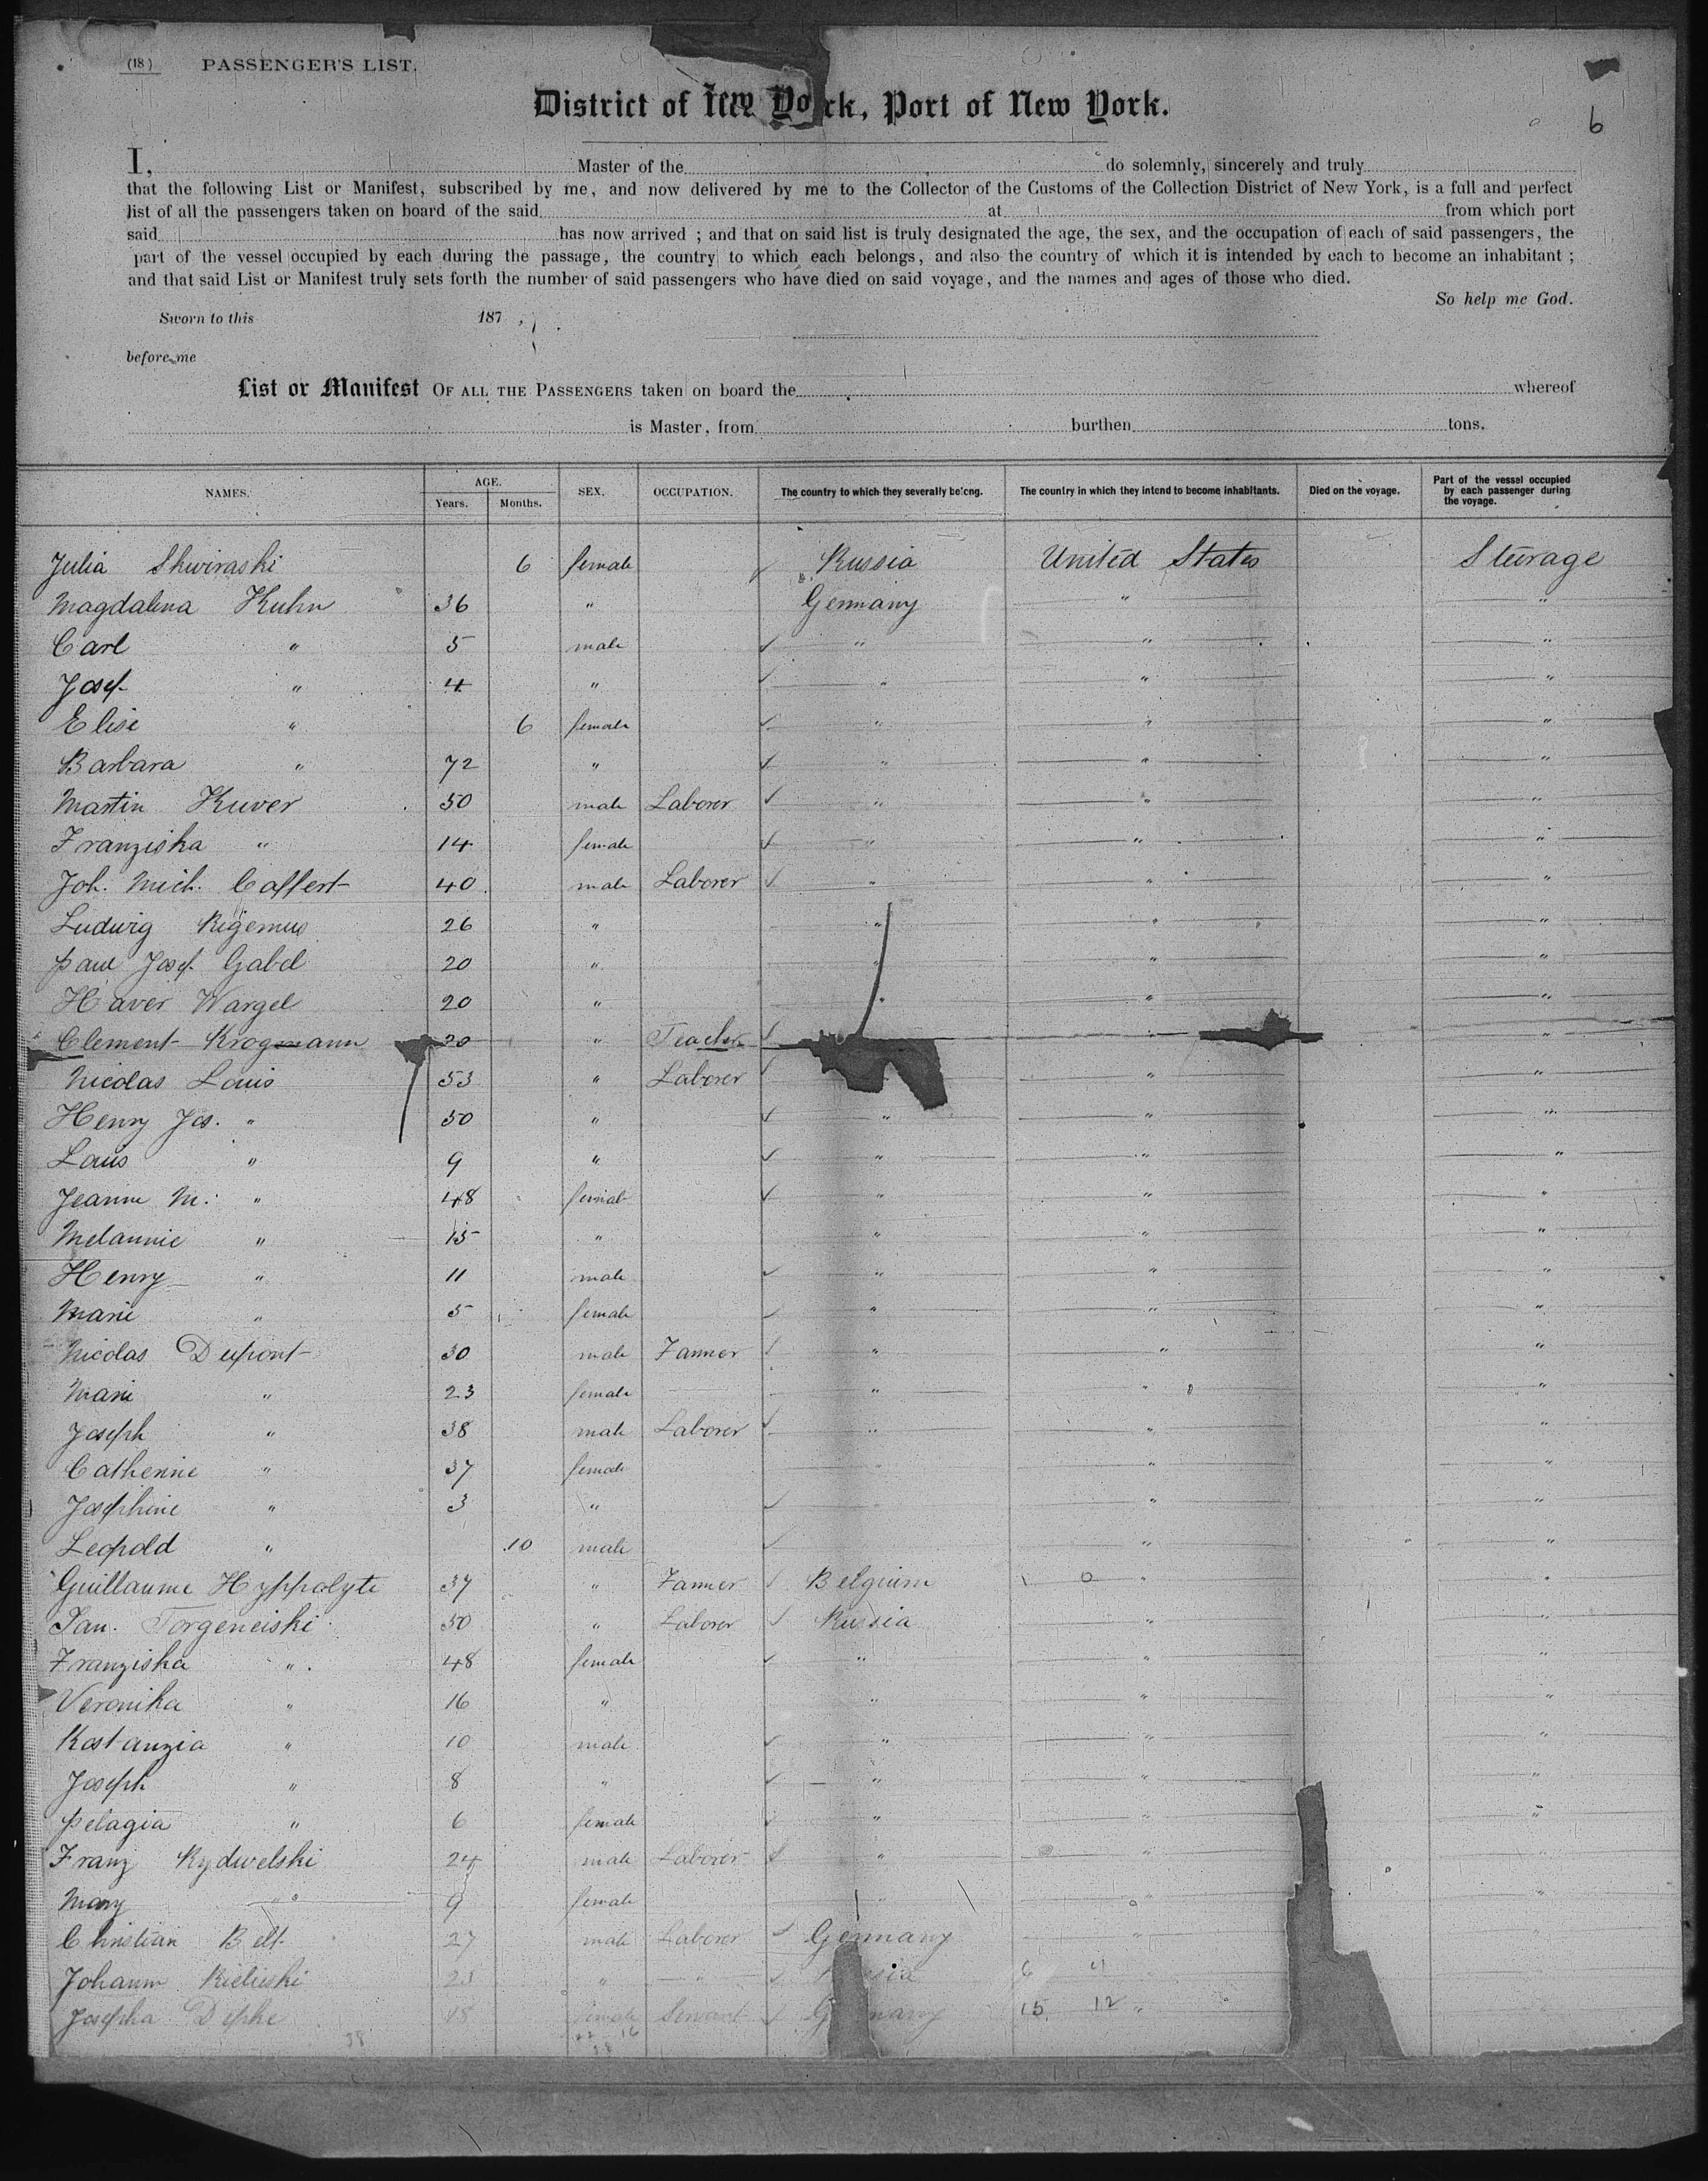 (18) PASSENGER'S LIST.
6
District of New York, Port of New York.
I, Master of the do solemnly, sincerely and truly
that the following List or Manifest, subscribed by me, and now delivered by me to the Collector of the Customs of the Collection District of New York, is a full and perfect
list of all the passengers taken on board of the said at from which port
said has now arrived ; and that on said list is truly designated the age, the sex, and the occupation of each of said passengers, the
part of the vessel occupied by each during the passage, the country to which each belongs, and also the country of which it is intended by each to become an inhabitant ;
and that said List or Manifest truly sets forth the number of said passengers who have died on said voyage, and the names and ages of those who died.
So help me God.
Sworn to this 187
before me
List or Manifest OF ALL THE PASSENGERS taken on board the whereof
is Master, from burthen tons.
NAMES. AGE. Years. Months. SEX. OCCUPATION. The country to which they severally belong. The country in which they intend to become inhabitants. Died on the voyage. Part of the vessel occupied by each passenger during the voyage.
Julia Skwiraski 6 female Russia United States Steerage
Magdalena Kuhn 36 " Germany " "
Carl " 5 male " " "
Josef " 4 " " " "
Elise " 6 female " " "
Barbara " 72 " " " "
Martin Kuver 50 male Laborer " " "
Franziska " 14 female " " "
Joh. Mich. Caffert 40 male Laborer " " "
Ludwig Rigemus 26 " " " "
Paul Josef Gabel 20 " " " "
Xaver Wargel 20 " " " "
Clement Krogmann 20 " Teacher " "
Nicolas Louis 53 " Laborer " "
Henry Jos. " 50 " " " "
Louis " 9 " " " "
Jeanne M. " 48 female " " "
Melannie " 15 " " " "
Henry " 11 male " " "
Marie " 5 female " " "
Nicolas Dupont 30 male Farmer " " "
Marie " 23 female " " "
Joseph " 38 male Laborer " " "
Catherine " 37 female " "
Josephine " 3 " " "
Leopold " 10 male " "
Guillaume Hyppolyte 37 " Farmer Belgium " "
Jan. Torgeneiski 50 " Laborer Russia " "
Franziska " 48 female " " "
Veronika " 16 " " " "
Kostanzia " 10 male " " "
Joseph " 8 " " " "
Pelagia " 6 female " " "
Franz Rydwelski 24 male Laborer " " "
Mary " 9 female " "
Christian Belt 27 male Laborer Germany "
Johann 23 " "
Josepha Depke 18 female Servant Germany 15 12 "
38